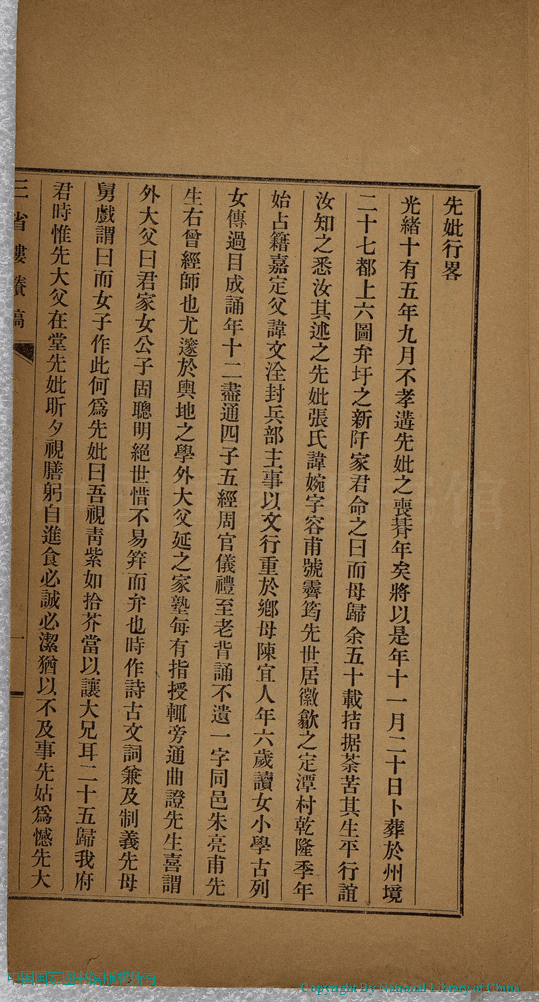 先妣行畧
光緖十有五年九月不孝遘先妣之喪朞年矣將以是年十一月二十日卜葬於州境
二十七都上六圖弁圩之新阡家君命之曰而母歸余五十載拮据荼苦其生平行誼
汝知之悉汝其述之先妣張氏諱婉字容甫號霽筠先世居徽歙之定潭村乾隆季年
始占籍嘉定父諱文洤封兵部主事以文行重於鄕母陳宜人年六歲讀女小學古列
女傳過目成誦年十二盡通四子五經周官儀禮至老背誦不遺一字同邑朱亮甫先
生右曾經師也尤邃於輿地之學外大父延之家塾每有指授輒旁通曲證先生喜謂
外大父曰君家女公子固聰明絕世惜不易筓而弁也時作詩古文詞兼及制義先母
舅戲謂曰而女子作此何爲先妣曰吾視靑紫如拾芥當以讓大兄耳二十五歸我府
君時惟先大父在堂先妣昕夕視膳躬自進食必誠必潔猶以不及事先姑爲憾先大
三省樓賸稿
一
Copyright By National Library of China